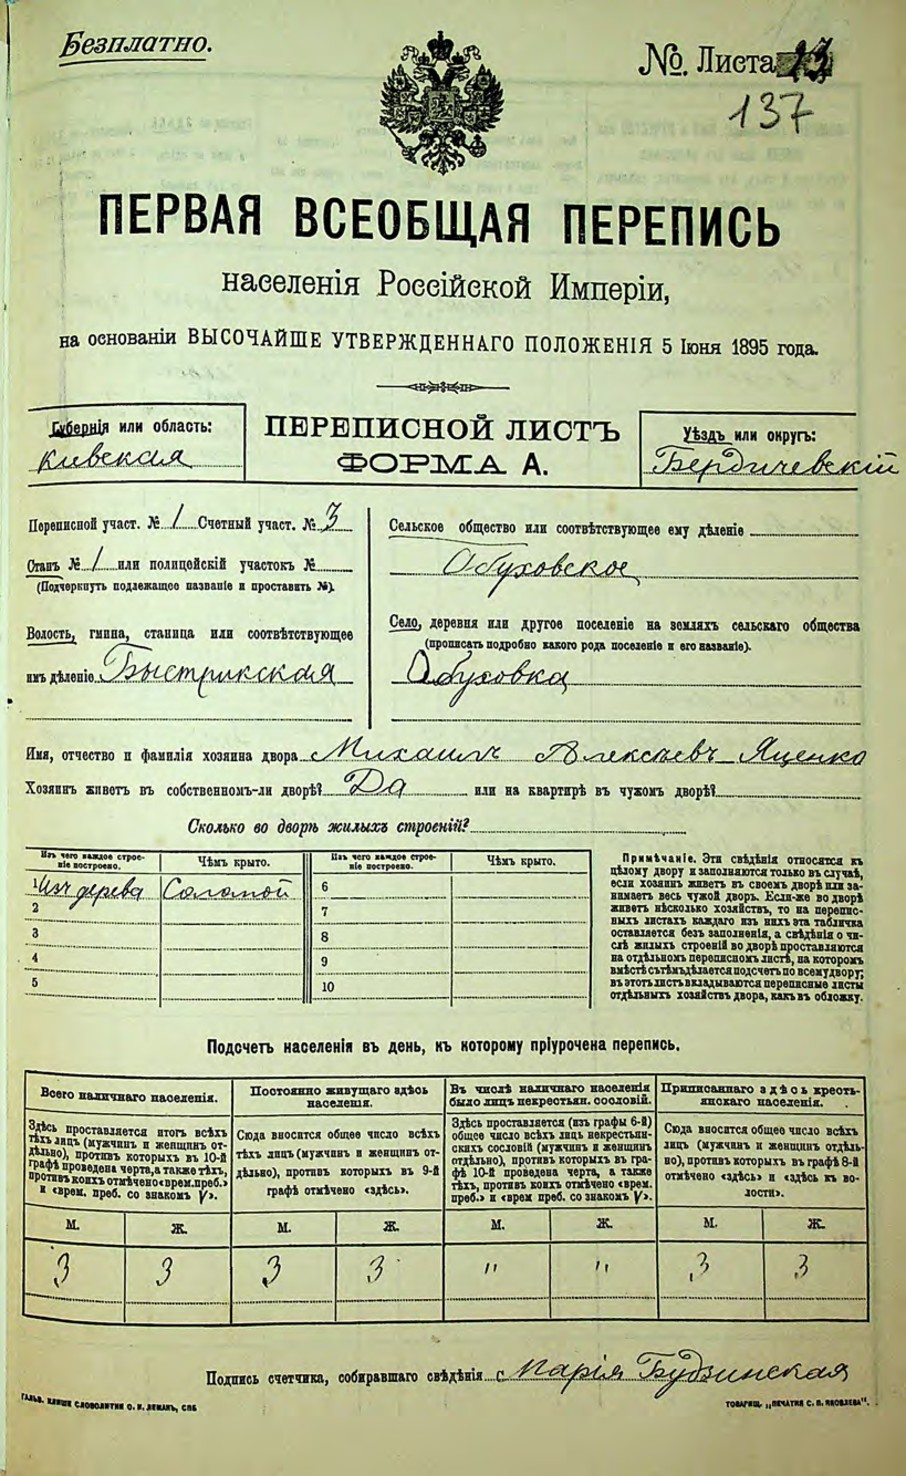 Безплатно.
№. Листа
137
ПЕРВАЯ ВСЕОБЩАЯ ПЕРЕПИСЬ
населенія Россійской Имперіи,
на основаніи ВЫСОЧАЙШЕ УТВЕРЖДЕННАГО ПОЛОЖЕНІЯ 5 Іюня 1895 года.
Губернія или область:
Кіевская
ПЕРЕПИСНОЙ ЛИСТЪ
ФОРМА А.
Уѣздъ или округъ:
Бердичевскій
Переписной участ. № 1 Счетный участ. № 3
Станъ № 1 или полицейскій участокъ №
(Подчеркнуть подлежащее названіе и проставить №).
Волость, гмина, станица или соотвѣтствующее
имъ дѣленіе Быстрикская
Сельское общество или соотвѣтствующее ему дѣленіе
Обуховское
Село, деревня или другое поселеніе на земляхъ сельскаго общества
(прописать подробно какого рода поселеніе и его названіе).
Обуховка
Имя, отчество и фамилія хозяина двора Михаилъ Алексѣевъ Яценко
Хозяинъ живетъ въ собственномъ-ли дворѣ? Да или на квартирѣ въ чужомъ дворѣ?
Сколько во дворѣ жилыхъ строеній?
Изъ чего каждое строе-
ніе построено.
Чѣмъ крыто.
Изъ чего каждое строе-
ніе построено.
Чѣмъ крыто.
1 Изъ дерева Соломой 6
2 7
3 8
4 9
5 10
Примѣчаніе. Эти свѣдѣнія относятся къ
цѣлому двору и заполняются только въ случаѣ,
если хозяинъ живетъ въ своемъ дворѣ или за-
нимаетъ весь чужой дворъ. Если-же во дворѣ
живетъ нѣсколько хозяйствъ, то на перепис-
ныхъ листахъ каждаго изъ нихъ эта табличка
оставляется безъ заполненія, а свѣдѣнія о чи-
слѣ жилыхъ строеній во дворѣ проставляются
на отдѣльномъ переписномъ листѣ, на которомъ
вмѣстѣ съ тѣмъ дѣлается подсчетъ по всему двору;
въ этотъ листъ вкладываются переписные листы
отдѣльныхъ хозяйствъ двора, какъ въ обложку.
Подсчетъ населенія въ день, къ которому пріурочена перепись.
Всего наличнаго населенія.
Здѣсь проставляется итогъ всѣхъ
тѣхъ лицъ (мужчинъ и женщинъ от-
дѣльно), противъ которыхъ въ 10-й
графѣ проведена черта, а также тѣхъ,
противъ коихъ отмѣчено «врем. преб.»
и «врем. преб. со знакомъ V».
Постоянно живущаго здѣсь
населенія.
Сюда вносится общее число всѣхъ
тѣхъ лицъ (мужчинъ и женщинъ от-
дѣльно), противъ которыхъ въ 9-й
графѣ отмѣчено «здѣсь».
Въ числѣ наличнаго населенія
было лицъ некрестьян. сословій.
Здѣсь проставляется (изъ графы 6-й)
общее число всѣхъ лицъ некрестьян-
скихъ сословій (мужчинъ и женщинъ
отдѣльно), противъ которыхъ въ гра-
фѣ 10-й проведена черта, а также
тѣхъ, противъ коихъ отмѣчено «врем.
преб.» и «врем преб. со знакомъ V».
Приписаннаго здѣсь кресть-
янскаго населенія.
Сюда вносится общее число всѣхъ
лицъ (мужчинъ и женщинъ отдѣль-
но), противъ которыхъ въ графѣ 8-й
отмѣчено «здѣсь» и «здѣсь къ во-
лости».
М. Ж. М. Ж. М. Ж. М. Ж.
3 3 3 3 " " 3 3
Подпись счетчика, собиравшаго свѣдѣнія Марія Будзинская
ГАЛЬВ. КЛИШЕ СЛОВОЛИТНИ О. И. ЛЕМАНЪ, СПБ
ТОВАРИЩ. „ПЕЧАТНЯ С. П. ЯКОВЛЕВА".